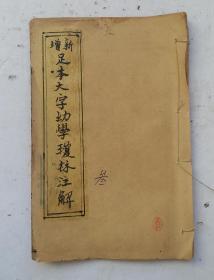 新增
足本大字幼學瓊林注解
叁